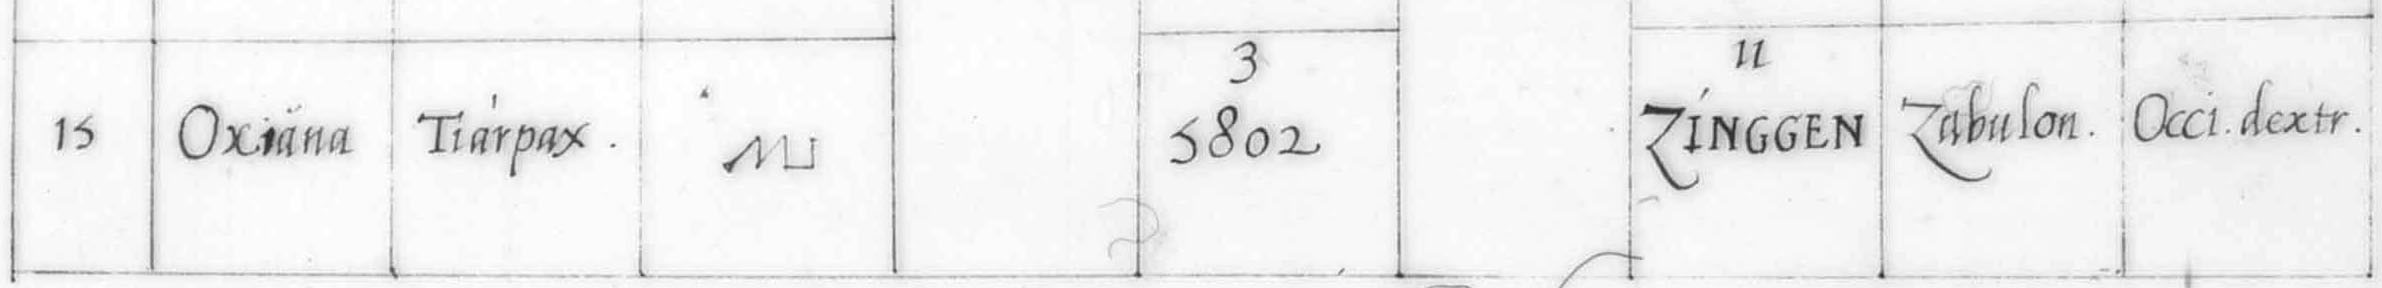 15 Oxiăna Tiárpax. 3 5802 11 ZÍNGGEN Zabulon. Occi. dextr.